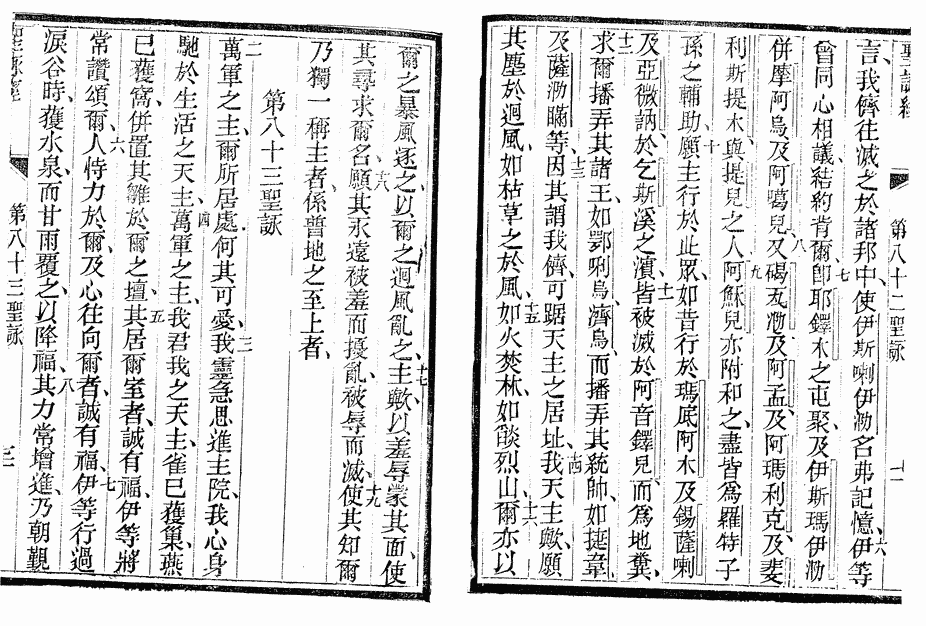 聖詠經
第八十二聖詠
二
言、我儕往滅之於諸邦中、使伊斯喇伊泐名弗記憶、六伊等
曾同心相議、結約背爾、七卽耶鐸木之屯聚、及伊斯瑪伊泐
併摩阿烏、及阿噶兒、八又碣瓦泐及阿孟、及阿瑪利克、及斐
利斯提木、與提兒之人、九阿穌兒亦附和之、盡皆爲羅特子
孫之輔助、十願主行於此眾、如昔行於瑪底阿木、及錫薩喇
及亞微訥於乞斯溪之濱、十一皆被滅於阿音鐸兒、而爲地糞、
十二求爾播弄其諸王、如鄂唎烏、濟烏、而播弄其統帥、如挻韋
及薩泐瞞等、十三因其謂我儕可踞天主之居址、十四我天主歟、願
其塵於迴風、如枯草之於風、十五如火焚林、如燄烈山、十六爾亦以
爾之暴風逐之、以爾之迴風亂之、十七主歟、以羞辱蒙其面、使
其尋求爾名、十八願其永遠被羞而擾亂、被辱而滅、十九使其知爾
乃獨一稱主者、係普地之至上者、
第八十三聖詠
二萬軍之主、爾所居處、何其可愛、三我靈急思進主院、我心身
馳於生活之天主、四萬軍之主、我君我之天主、雀已獲巢、燕
已獲窩、併置其雛於爾之壇、五其居爾室者、誠有福、伊等將
常讚頌爾、六人恃力於爾、及心往向爾者、誠有福、七伊等行過
涙谷時、獲水泉、而甘雨覆之以降福、八其力常增進、乃朝覲
聖詠經
第八十三聖詠
三